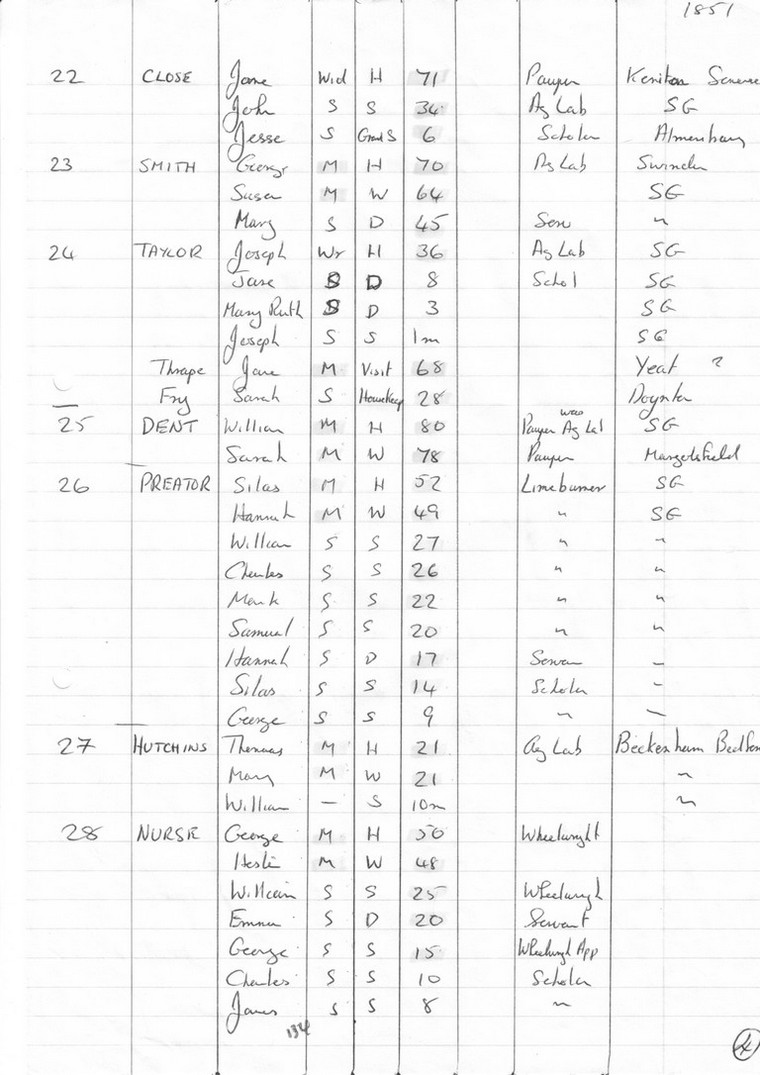 1851
22 CLOSE Jane Wid H 71 Pauper
John S S 34 Ag Lab SG
Jesse S Grand S 6 Scholar
23 SMITH George M H 70 Ag Lab Swindon
Susan M W 64 SG
Mary S D 45 Serv "
24 TAYLOR Joseph Wr H 36 Ag Lab SG
Jane S D 8 Schol SG
Mary Ruth S D 3 SG
Joseph S S 1m SG
Thrape Jane M Visit 68 Yeat ?
Fry Sarah S Housekeep 28 Doynton
25 DENT William M H 80 Pauper was Ag Lab SG
Sarah M W 78 Pauper Mangotsfield
26 PREATOR Silas M H 52 Limeburner SG
Hannah M W 49 " SG
William S S 27 " "
Charles S S 26 " "
Mark S S 22 " "
Samuel S S 20 " "
Hannah S D 17 Servan –
Silas S S 14 Scholar –
George S S 9 " –
27 HUTCHINS Thomas M H 21 Ag Lab Beckenham
Mary M W 21 "
William – S 10m "
28 NURSE George M H 50 Wheelwright
Hester M W 48
William S S 25 Wheelwrigh
Emma S D 20 Servant
George S S 15 Wheelwrigh App
Charles S S 10 Scholar
James S S 8 "
134
4